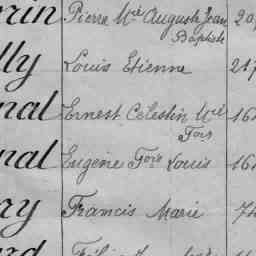 rrin Pierre Mie Auguste Jean 20
Baptiste
lly Louis Etienne 217
nal Ernest Célestin Wil 164
Fois
nal Eugène Fois Louis 164
ry Francis Marie 74